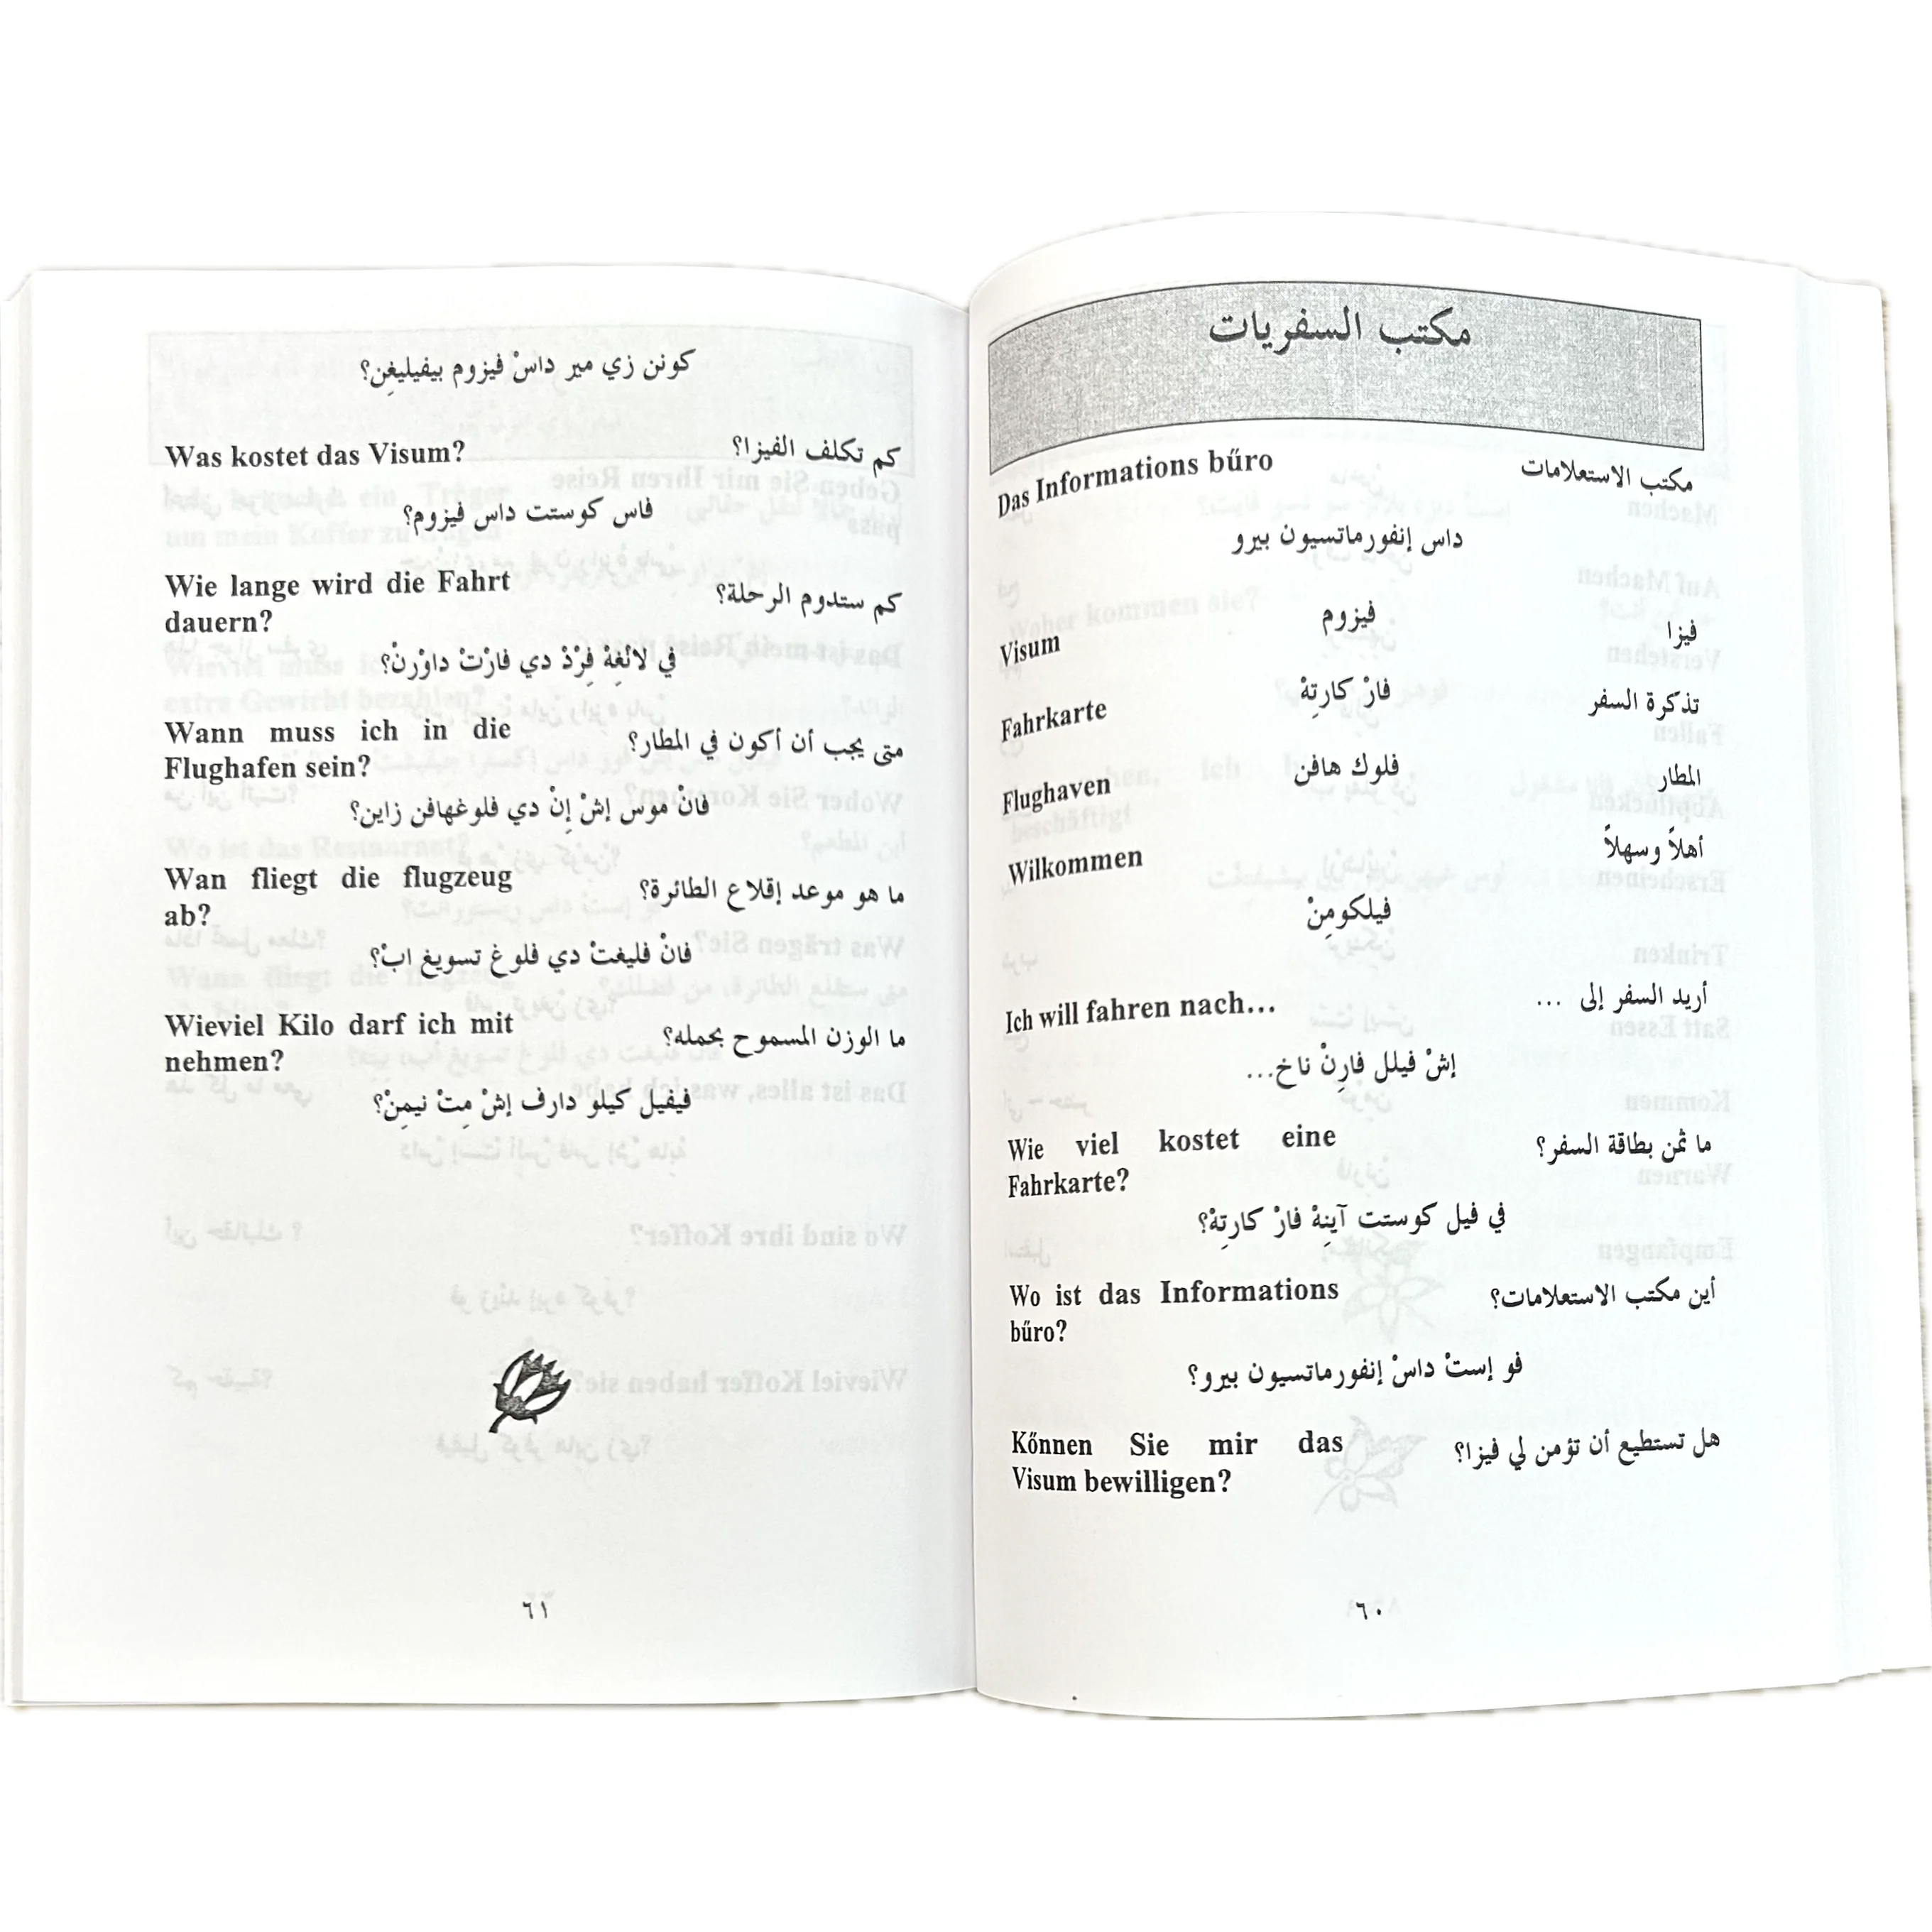 مكتب السفريات
Das Informations bűro مكتب الاستعلامات
داس إنفورماتسيون بيرو
Visum فيزوم فيزا
Fahrkarte فارْ كارتِهْ تذكرة السفر
Flughaven فلوك هافن المطار
Wilkommen أهلاً وسهلاً
فيلكومِنْ
Ich will fahren nach... أريد السفر إلى ...
إشْ فيلل فارِنْ ناخ...
Wie viel kostet eine ما ثمن بطاقة السفر؟
Fahrkarte?
في فيل كوستت آينِهْ فارْ كارتِهْ؟
Wo ist das Informations أين مكتب الاستعلامات؟
bűro?
فو إستْ داسْ إنفورماتسيون بيرو؟
Kőnnen Sie mir das هل تستطيع أن تؤمن لي فيزا؟
Visum bewilligen?
٦٠
كونن زي مير داسْ فيزوم بيفيليغِن؟
Was kostet das Visum? كم تكلف الفيزا؟
فاس كوستت داس فيزوم؟
Wie lange wird die Fahrt كم ستدوم الرحلة؟
dauern?
في لانْغِهْ فِرْدْ دي فارْتْ داوْرنْ؟
Wann muss ich in die متى يجب أن أكون في المطار؟
Flughafen sein?
فانْ موس إشْ إِنْ دي فلوغهافن زاين؟
Wan fliegt die flugzeug ما هو موعد إقلاع الطائرة؟
ab?
فانْ فليغتْ دي فلوغ تسويغ ابْ؟
Wieviel Kilo darf ich mit ما الوزن المسموح بحمله؟
nehmen?
فيفيل كيلو دارف إشْ مِتْ نيمِنْ؟
٦١